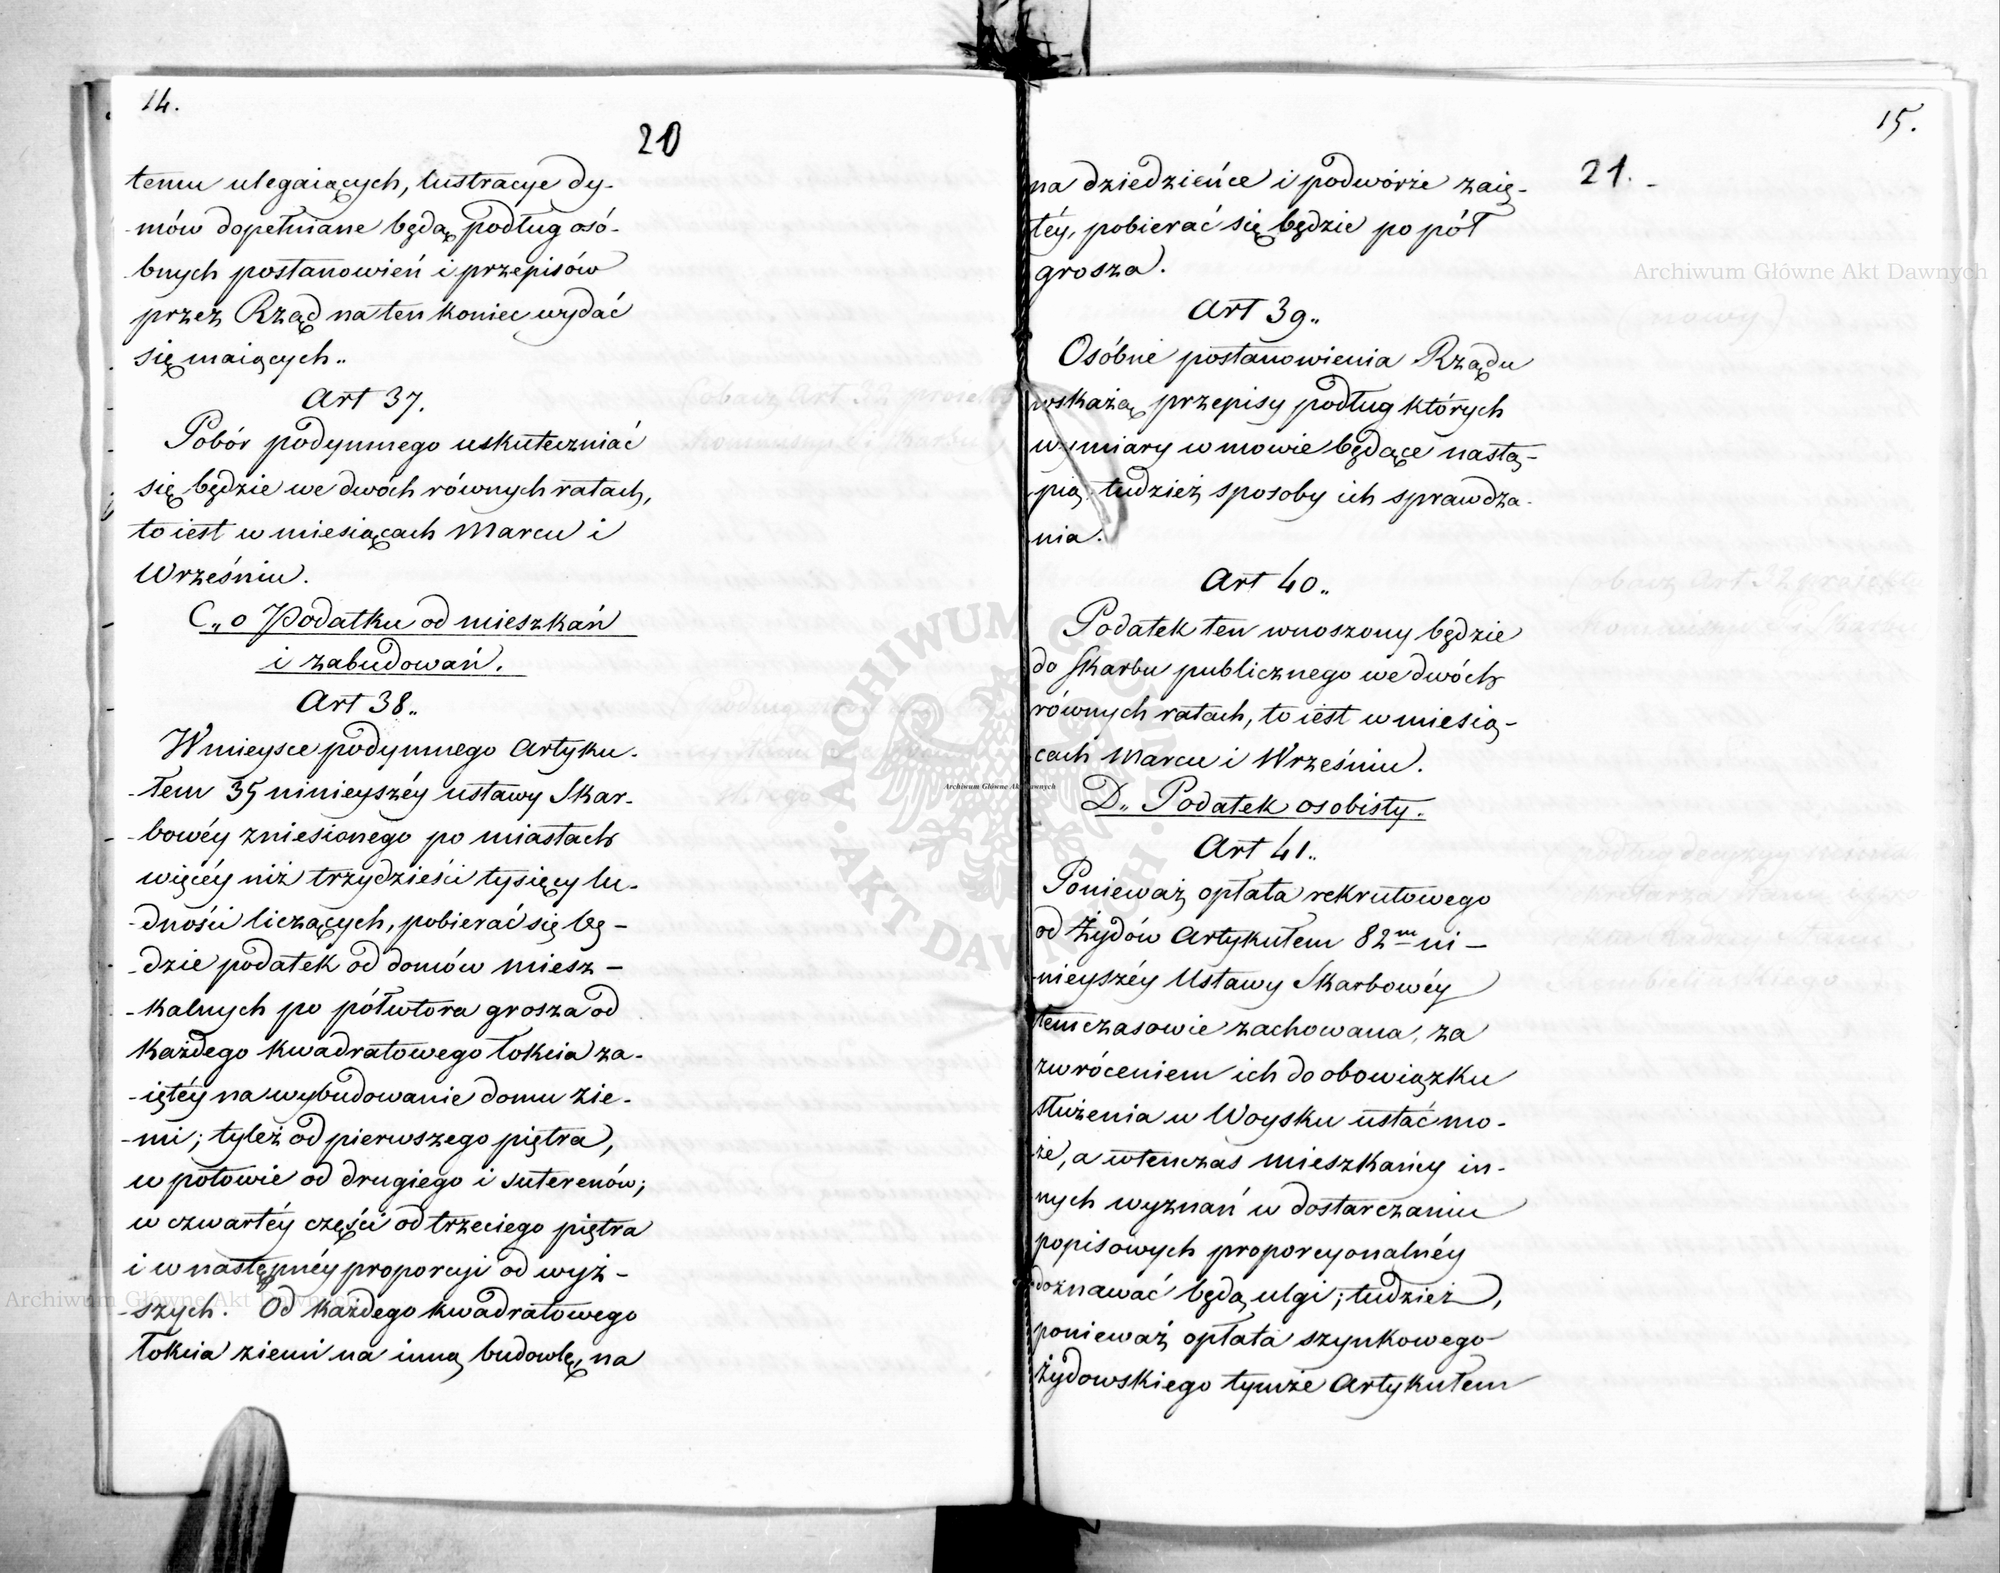 14.
20
temu ulegaiących, lustracye dy-
-mów dopełniane będą podług osó-
-bnych postanowień i przepisów
przez Rząd na ten koniec wydać
się maiących..
Art 37.
Pobór podymnego uskuteczniać
się będzie we dwóch równych ratach,
to iest w miesiącach Marcu i
Wrześniu.
C„ o Podatku od mieszkań
i zabudowań.
Art 38„
W mieysce podymnego Artyku-
-łem 35 ninieyszéy ustawy Skar-
-bowéy zniesionego po miastach
więcéy niż trzydzieści tysięcy lu-
-dności liczących, pobierać się bę-
-dzie podatek od domów miesz-
-kalnych po półwtora grosza od
każdego kwadratowego łokcia za-
-iętéy na wybudowanie domu zie-
-mi; tyleż od pierwszego piętra,
w połowie od drugiego i suterenów;
w czwartéy części od trzeciego piętra
i w następnéy proporcyi od wyż-
-szych. Od każdego kwadratowego
łokcia ziemi na inną budowlę, na
15.
21.
na dziedzieńce i podwórze zaię-
téy, pobierać się będzie po pół
grosza.
Art 39„
Osóbne postanowienia Rządu
wskażą przepisy podług których
wymiary w mowie będące nastą-
pią, tudzież sposoby ich sprawdza-
nia.
Art 40„
Podatek ten wnoszony będzie
do Skarbu publicznego we dwóch
równych ratach, to iest w miesią-
cach Marcu i Wrześniu.
D„ Podatek osobisty.
Art 41„
Ponieważ opłata rekrutowego
od Żydów Artykułem 82m ni-
nieyszéy Ustawy Skarbowéy
temczasowie zachowana, za
zwróceniem ich do obowiązku
służenia w Woysku ustać mo-
że, a wtenczas mieszkańcy in-
nych wyznań w dostarczaniu
popisowych proporcyonalnéy
doznawać będą ulgi; tudzież,
ponieważ opłata szynkowego
żydowskiego tymże Artykułem
Archiwum Główne Akt Dawnych
Archiwum Główne Akt Dawnych
Archiwum Główne Akt Dawnych